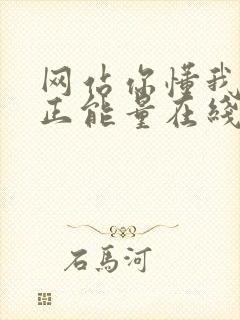 网站你懂我
正能量在线
石马河